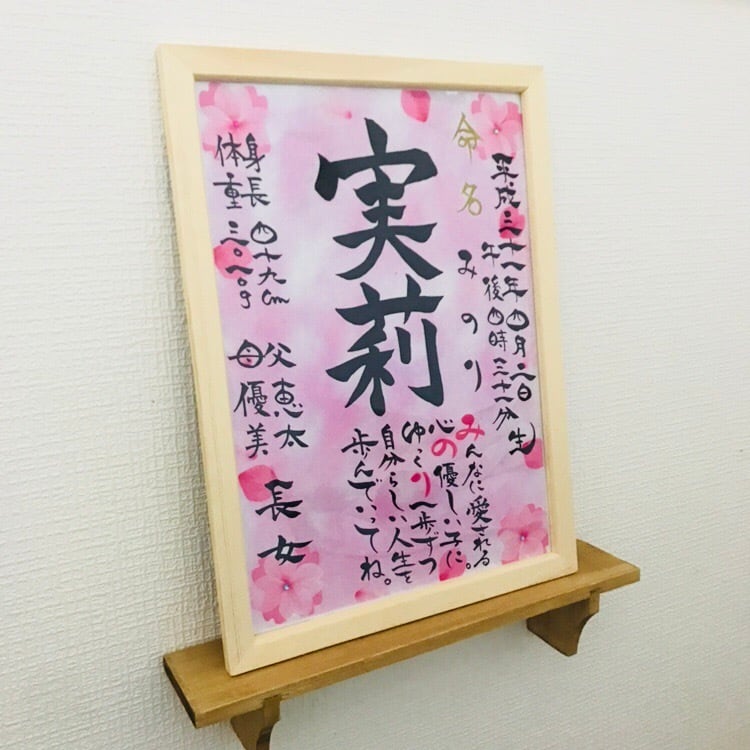 平成三十一年四月二日
午後四時三十一分生
命名
みのり
実莉
みんなに愛される
心の優しい子に。
ゆっくり一歩ずつ
自分らしい人生を
歩んでいってね。
身長 四十九cm
体重
父 恵太
母 優美
長女